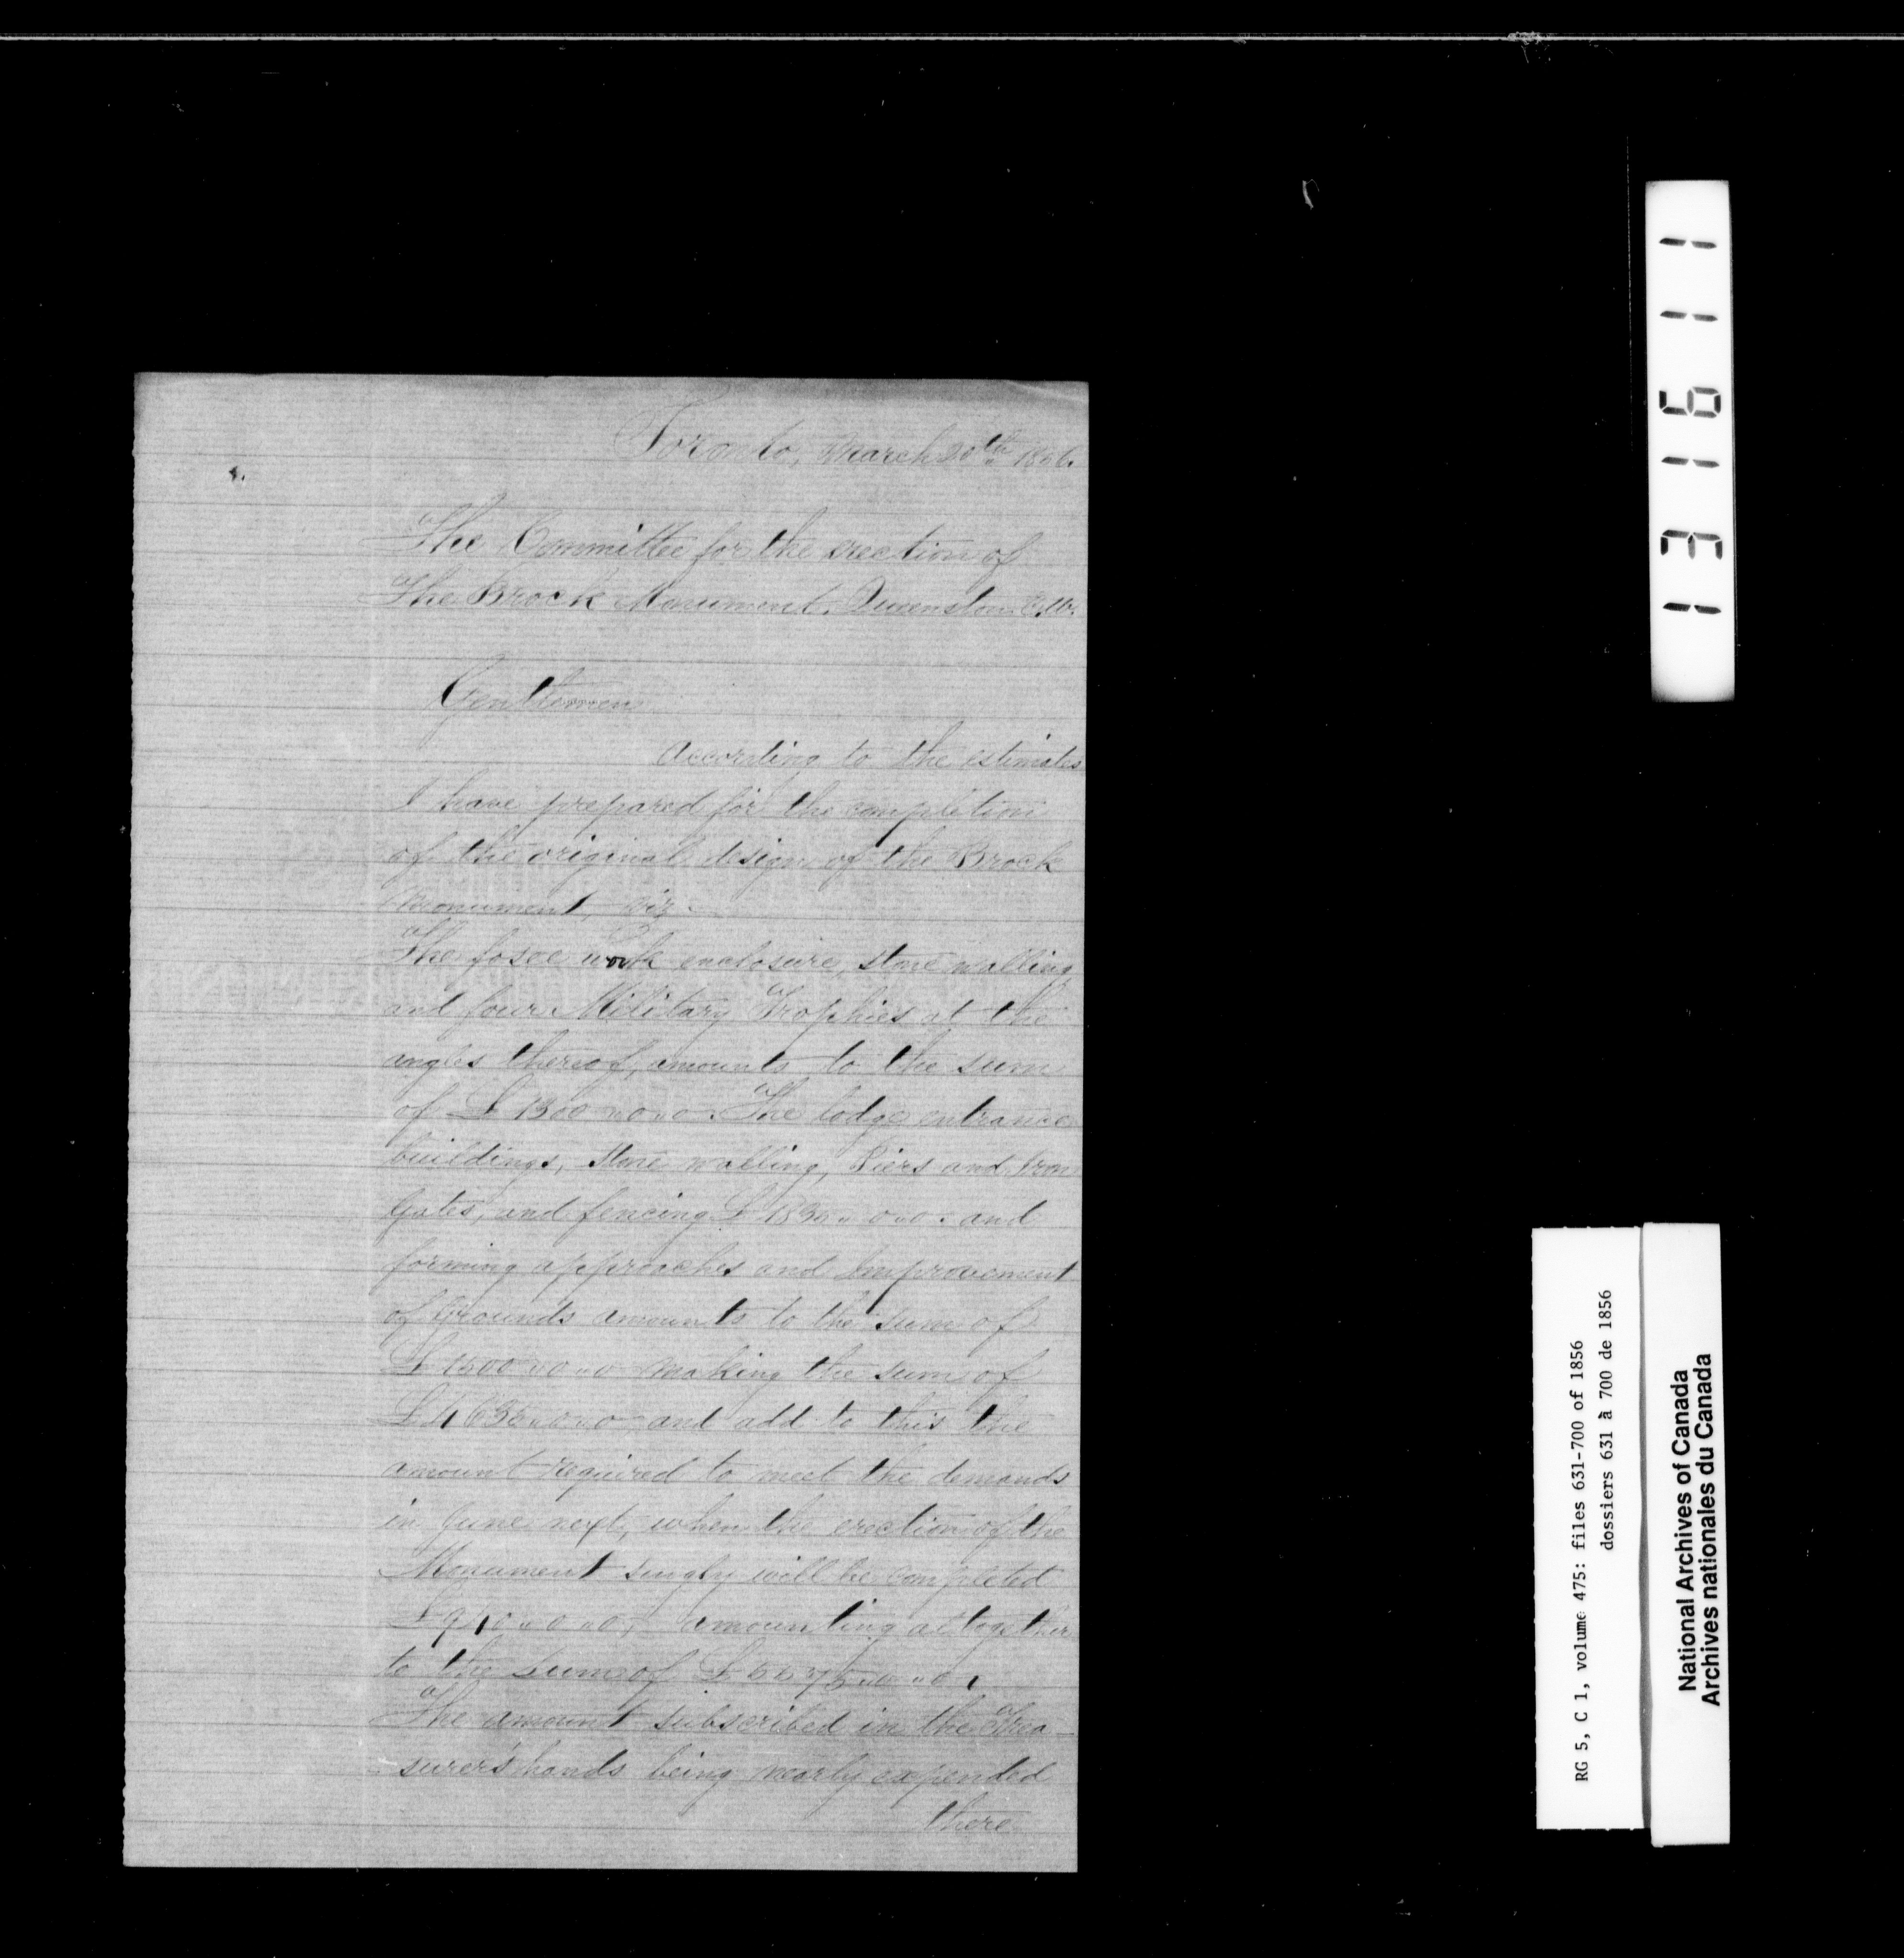 Toronto, March 20th 1856.
The Committee for the erection of
The Brock Monument, Queenston C.W.
Gentlemen
According to the estimates
I have prepared for the completion
of the original design of the Brock
Monument, viz.
The fosse work enclosure, stone walling,
and four Military Trophies at the
angles thereof, amounts to the sum
of £1300..0..0. The lodge entrance
buildings, stone walling, Piers and Iron
Gates, and fencing £ ..0..0. and
forming approaches and Improvement
of Grounds amounts to the sum of
£1500..0..0 making the sum of
£ ..0..0 and add to this the
amount required to meet the demands
in June next, when the erection of the
Monument singly will be completed
£940..0..0, amounting altogether
to the Sum of £
The amount subscribed in the Trea
surer's hands being nearly expended
there
131611
RG 5, C 1, volume 475: files 631-700 of 1856
dossiers 631 à 700 de 1856
National Archives of Canada
Archives nationales du Canada